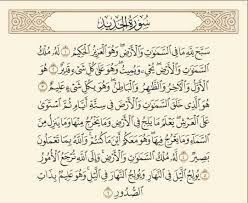 سُورَةُ الحَدِيدِ
سَبَّحَ لِلَّهِ مَا فِي السَّمَٰوَٰتِ وَالْأَرْضِ ۖ وَهُوَ الْعَزِيزُ الْحَكِيمُ ١ لَهُ مُلْكُ
السَّمَٰوَٰتِ وَالْأَرْضِ ۖ يُحْيِي وَيُمِيتُ ۖ وَهُوَ عَلَىٰ كُلِّ شَيْءٍ قَدِيرٌ ٢ هُوَ
الْأَوَّلُ وَالْآخِرُ وَالظَّاهِرُ وَالْبَاطِنُ ۖ وَهُوَ بِكُلِّ شَيْءٍ عَلِيمٌ ٣
هُوَ الَّذِي خَلَقَ السَّمَٰوَٰتِ وَالْأَرْضَ فِي سِتَّةِ أَيَّامٍ ثُمَّ اسْتَوَىٰ
عَلَى الْعَرْشِ ۚ يَعْلَمُ مَا يَلِجُ فِي الْأَرْضِ وَمَا يَخْرُجُ مِنْهَا وَمَا يَنزِلُ مِنَ
السَّمَاءِ وَمَا يَعْرُجُ فِيهَا ۖ وَهُوَ مَعَكُمْ أَيْنَ مَا كُنتُمْ ۚ وَاللَّهُ بِمَا تَعْمَلُونَ
بَصِيرٌ ٤ لَّهُ مُلْكُ السَّمَٰوَٰتِ وَالْأَرْضِ ۚ وَإِلَى اللَّهِ تُرْجَعُ الْأُمُورُ
٥ يُولِجُ اللَّيْلَ فِي النَّهَارِ وَيُولِجُ النَّهَارَ فِي اللَّيْلِ ۚ وَهُوَ عَلِيمٌ بِذَاتِ
الصُّدُورِ ٦